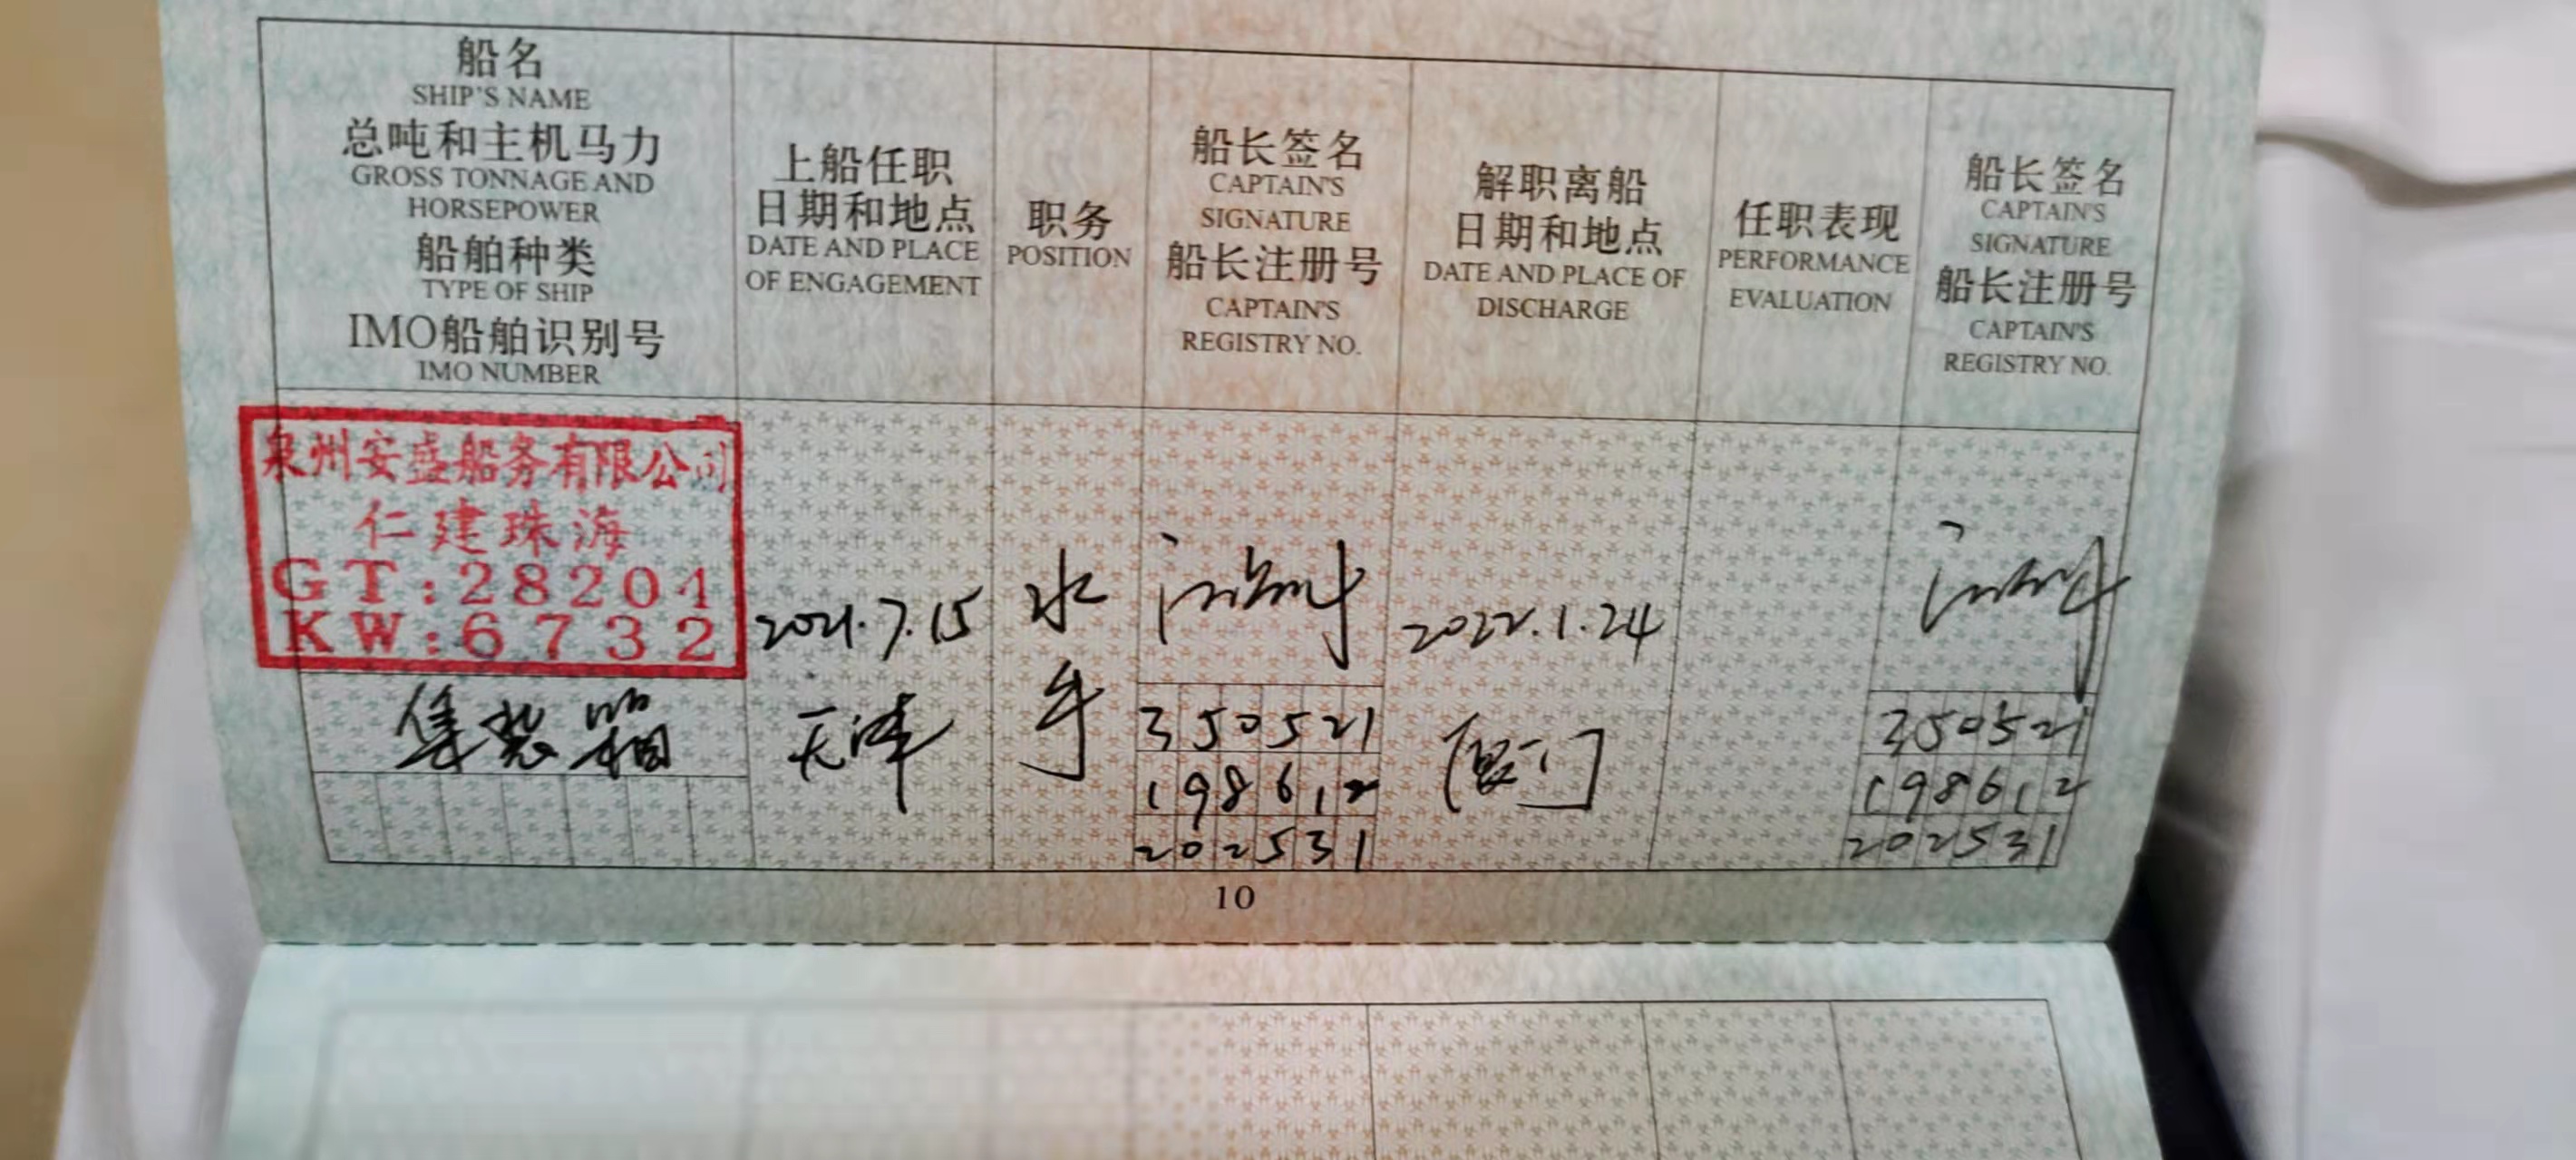 船名
SHIP'S NAME
总吨和主机马力
GROSS TONNAGE AND
HORSEPOWER
船舶种类
TYPE OF SHIP
IMO船舶识别号
IMO NUMBER
上船任职
日期和地点
DATE AND PLACE
OF ENGAGEMENT
职务
POSITION
船长签名
CAPTAIN'S
SIGNATURE
船长注册号
CAPTAIN'S
REGISTRY NO.
解职离船
日期和地点
DATE AND PLACE OF
DISCHARGE
任职表现
PERFORMANCE
EVALUATION
船长签名
CAPTAIN'S
SIGNATURE
船长注册号
CAPTAIN'S
REGISTRY NO.
泉州安盛船务有限公司
仁建珠海
GT:28204
KW:6732
集装箱
2021.7.15
天津
水
手
350521
198612
202531
2022.1.24
厦门
350521
198612
202531
10